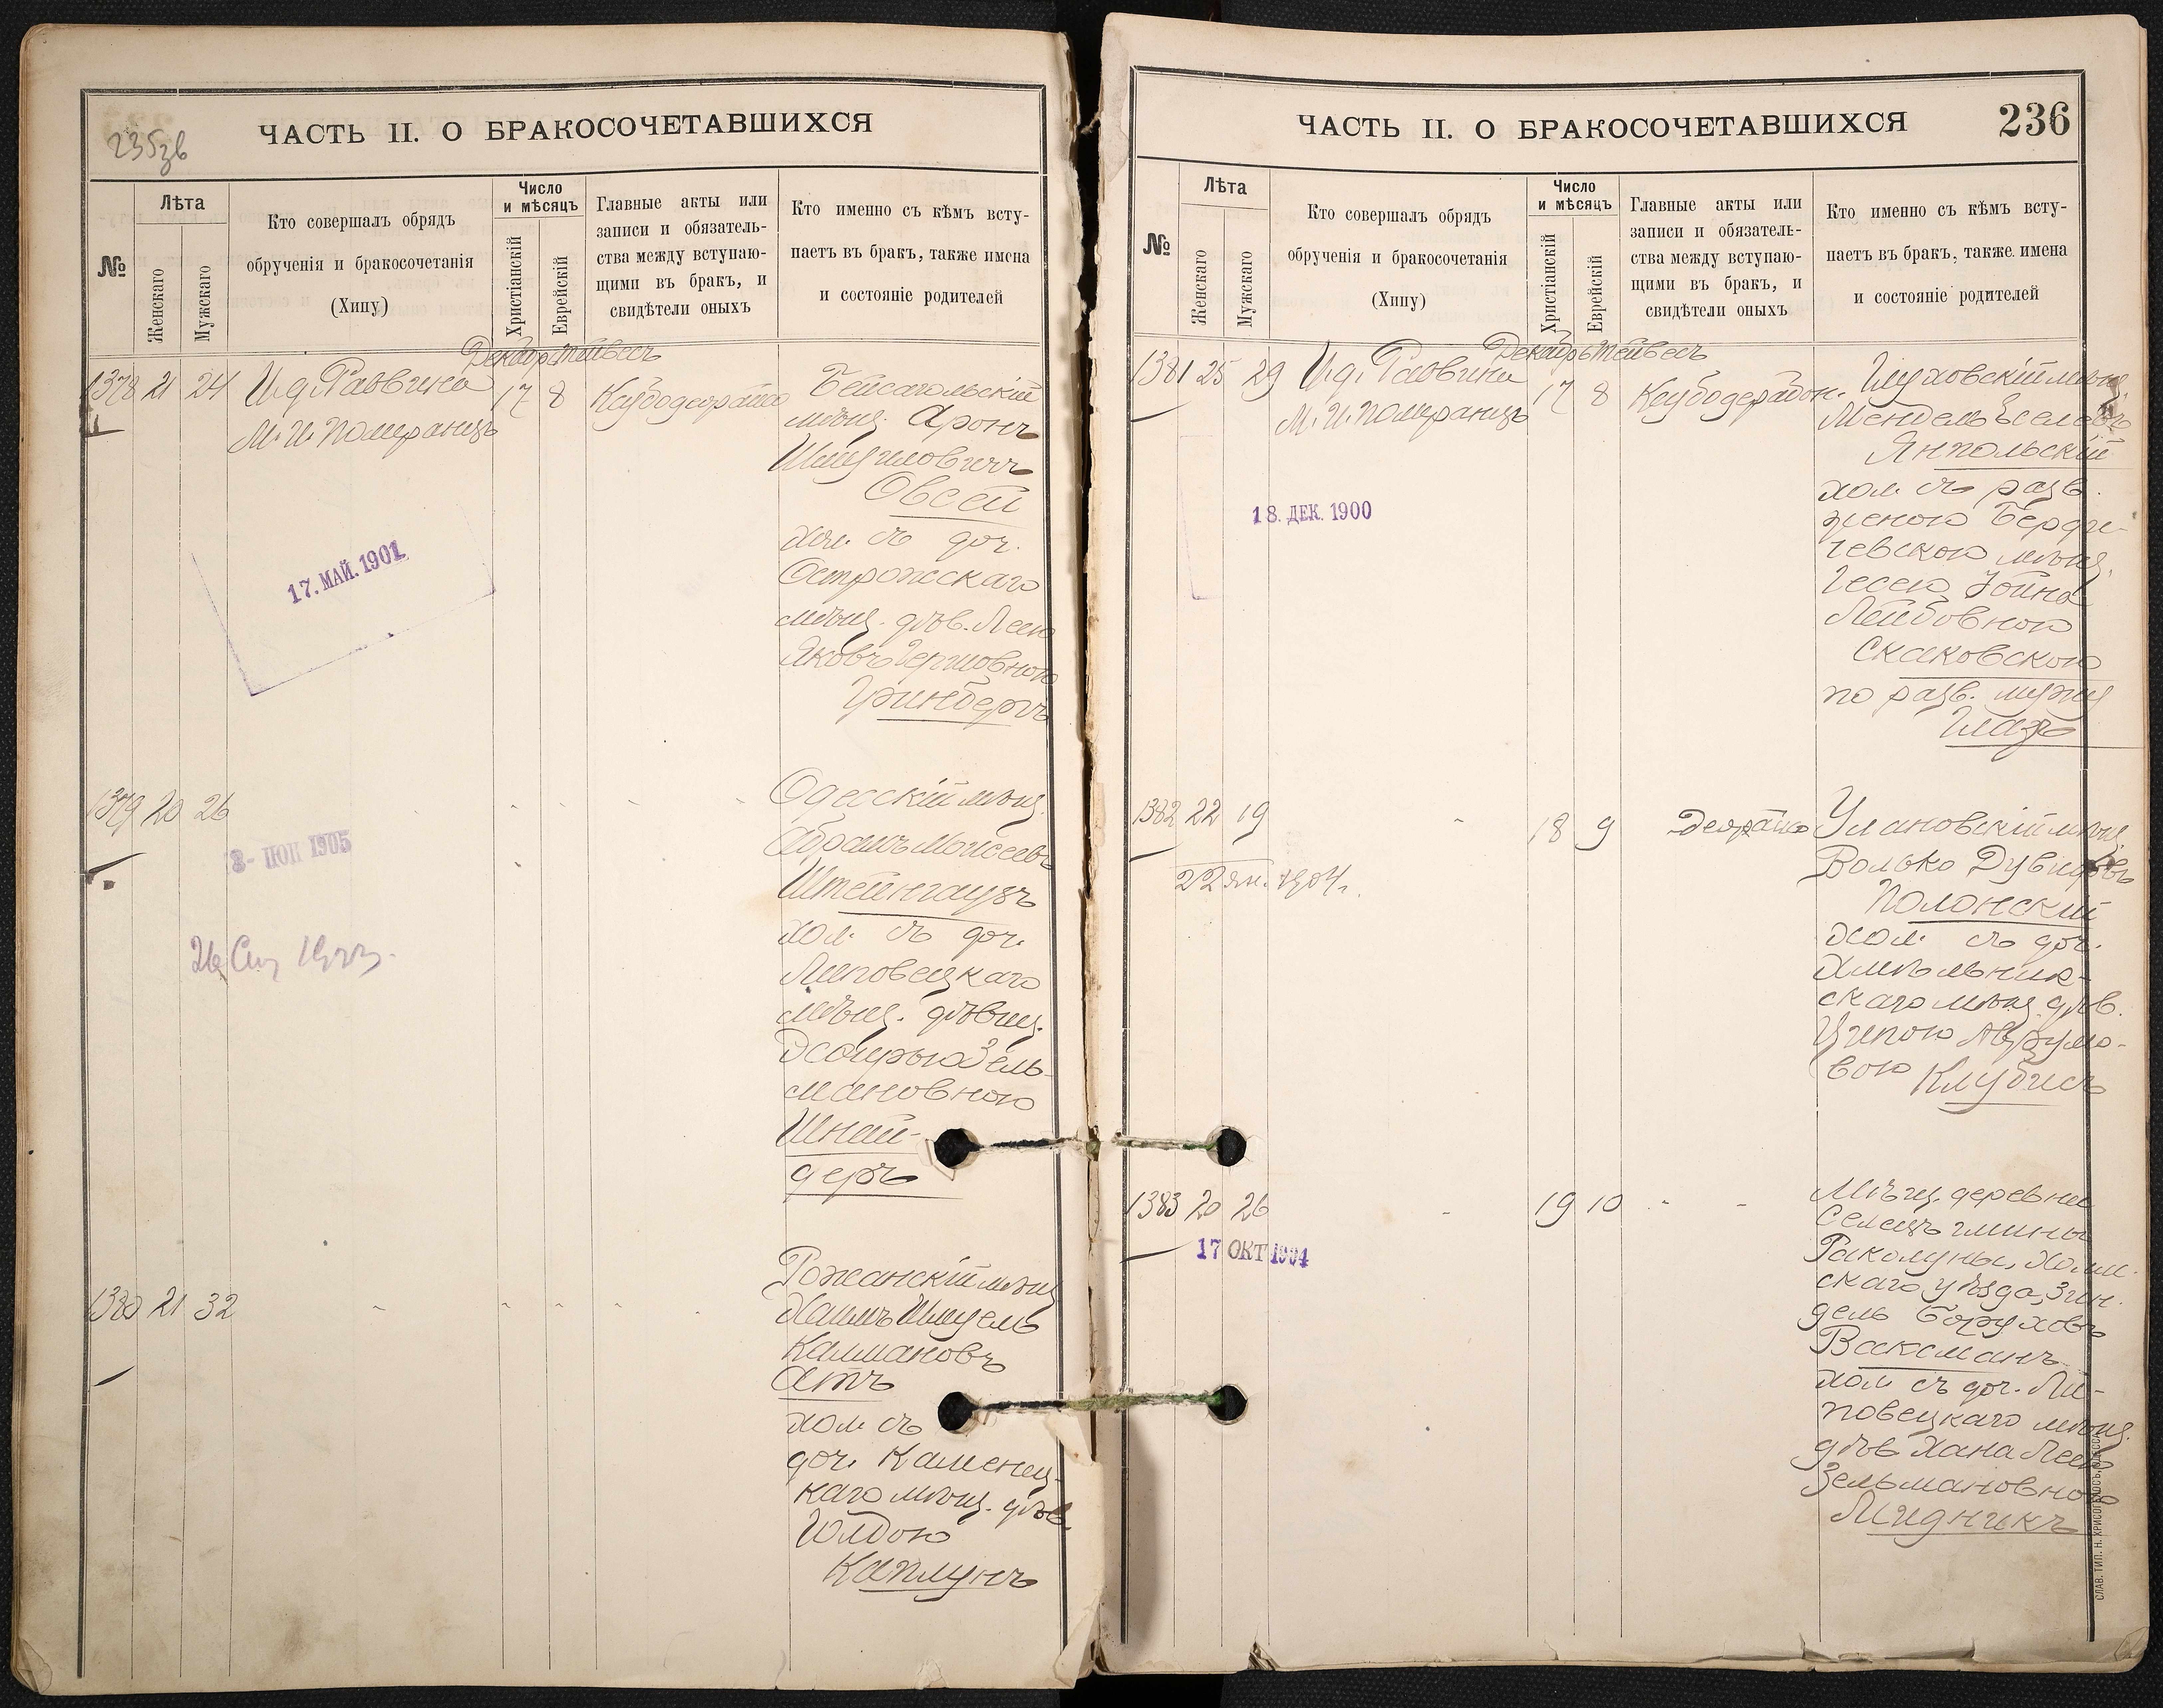 235зв
ЧАСТЬ II. О БРАКОСОЧЕТАВШИХСЯ
№
Лѣта
Женскаго
Мужскаго
Кто совершалъ обрядъ
обрученія и бракосочетанія
(Хипу)
Число
и мѣсяцъ
Христіанскій
Еврейскій
Главные акты или
записи и обязатель-
ства между вступаю-
щими въ бракъ, и
свидѣтели оныхъ
Кто именно съ кѣмъ всту-
паетъ въ бракъ, также имена
и состояніе родителей
Декабрь Тейвесъ
1378 21 24 И.д. Раввина
М. И. Померанцъ
17 8
Бейсагольскій
мѣщ. Аронъ
Шмуиловичъ
Овсей
хол. съ доч.
Острожскаго
мѣщ. дѣв. Леею
Яковъ Гершовною
Гринбергъ
17. МАЙ. 1901
1379 20 26
Одесскій мѣщ.
Абрамъ Моисеевъ
Штейнгаузъ
хол. съ доч.
Липовецкаго
мѣщ. дѣвиц.
Зель-
мановною
Шнай-
деръ
ИЮН 1905
1380 21 32
Рожанскій мѣщ.
Хаимъ Шмуель
Калмановъ
Атъ
хол. съ
доч. Каменец-
каго мѣщ. дѣв.
Каплунъ
ЧАСТЬ II. О БРАКОСОЧЕТАВШИХСЯ
236
№
Лѣта
Женскаго
Мужскаго
Кто совершалъ обрядъ
обрученія и бракосочетанія
(Хипу)
Число
и мѣсяцъ
Христіанскій
Еврейскій
Главные акты или
записи и обязатель-
ства между вступаю-
щими въ бракъ, и
свидѣтели оныхъ
Кто именно съ кѣмъ всту-
паетъ въ бракъ, также имена
и состояніе родителей
Декабрь Тейвесъ
1381 25 29 И.д. Раввина
М. И. Померанцъ
17 8
Глуховскій мѣщ.
Мендель
Янпольскій
хол. съ разв.
женою Берди-
чевскою мѣщ.
Гесею Хойна
Лейбовною
Скаковскою
по разв. мужу
Глазъ
18. ДЕК. 1900
1382 22 19
18 9
Улановскій мѣщ.
Волько Дувидовъ
Полонскій
хол. съ доч.
Хмѣльник-
скаго мѣщ. дѣв.
Ципою Аврумо-
вою Клубисъ
22 Ян. 1904 г.
1383 20 26
19 10
Мѣщ. деревни
Селецъ гмины
Раколупы, Холм-
скаго уѣзда, Зин-
дель Боруховъ
Ваксманъ
хол съ доч. Ли-
повецкаго мѣщ.
дѣв Хана Леею
Зельмановною
Мидникъ
17 ОКТ 1904
СЛАВ. ТИП. Н. ХРИСОГЕЛОСЪ, ОДЕССА